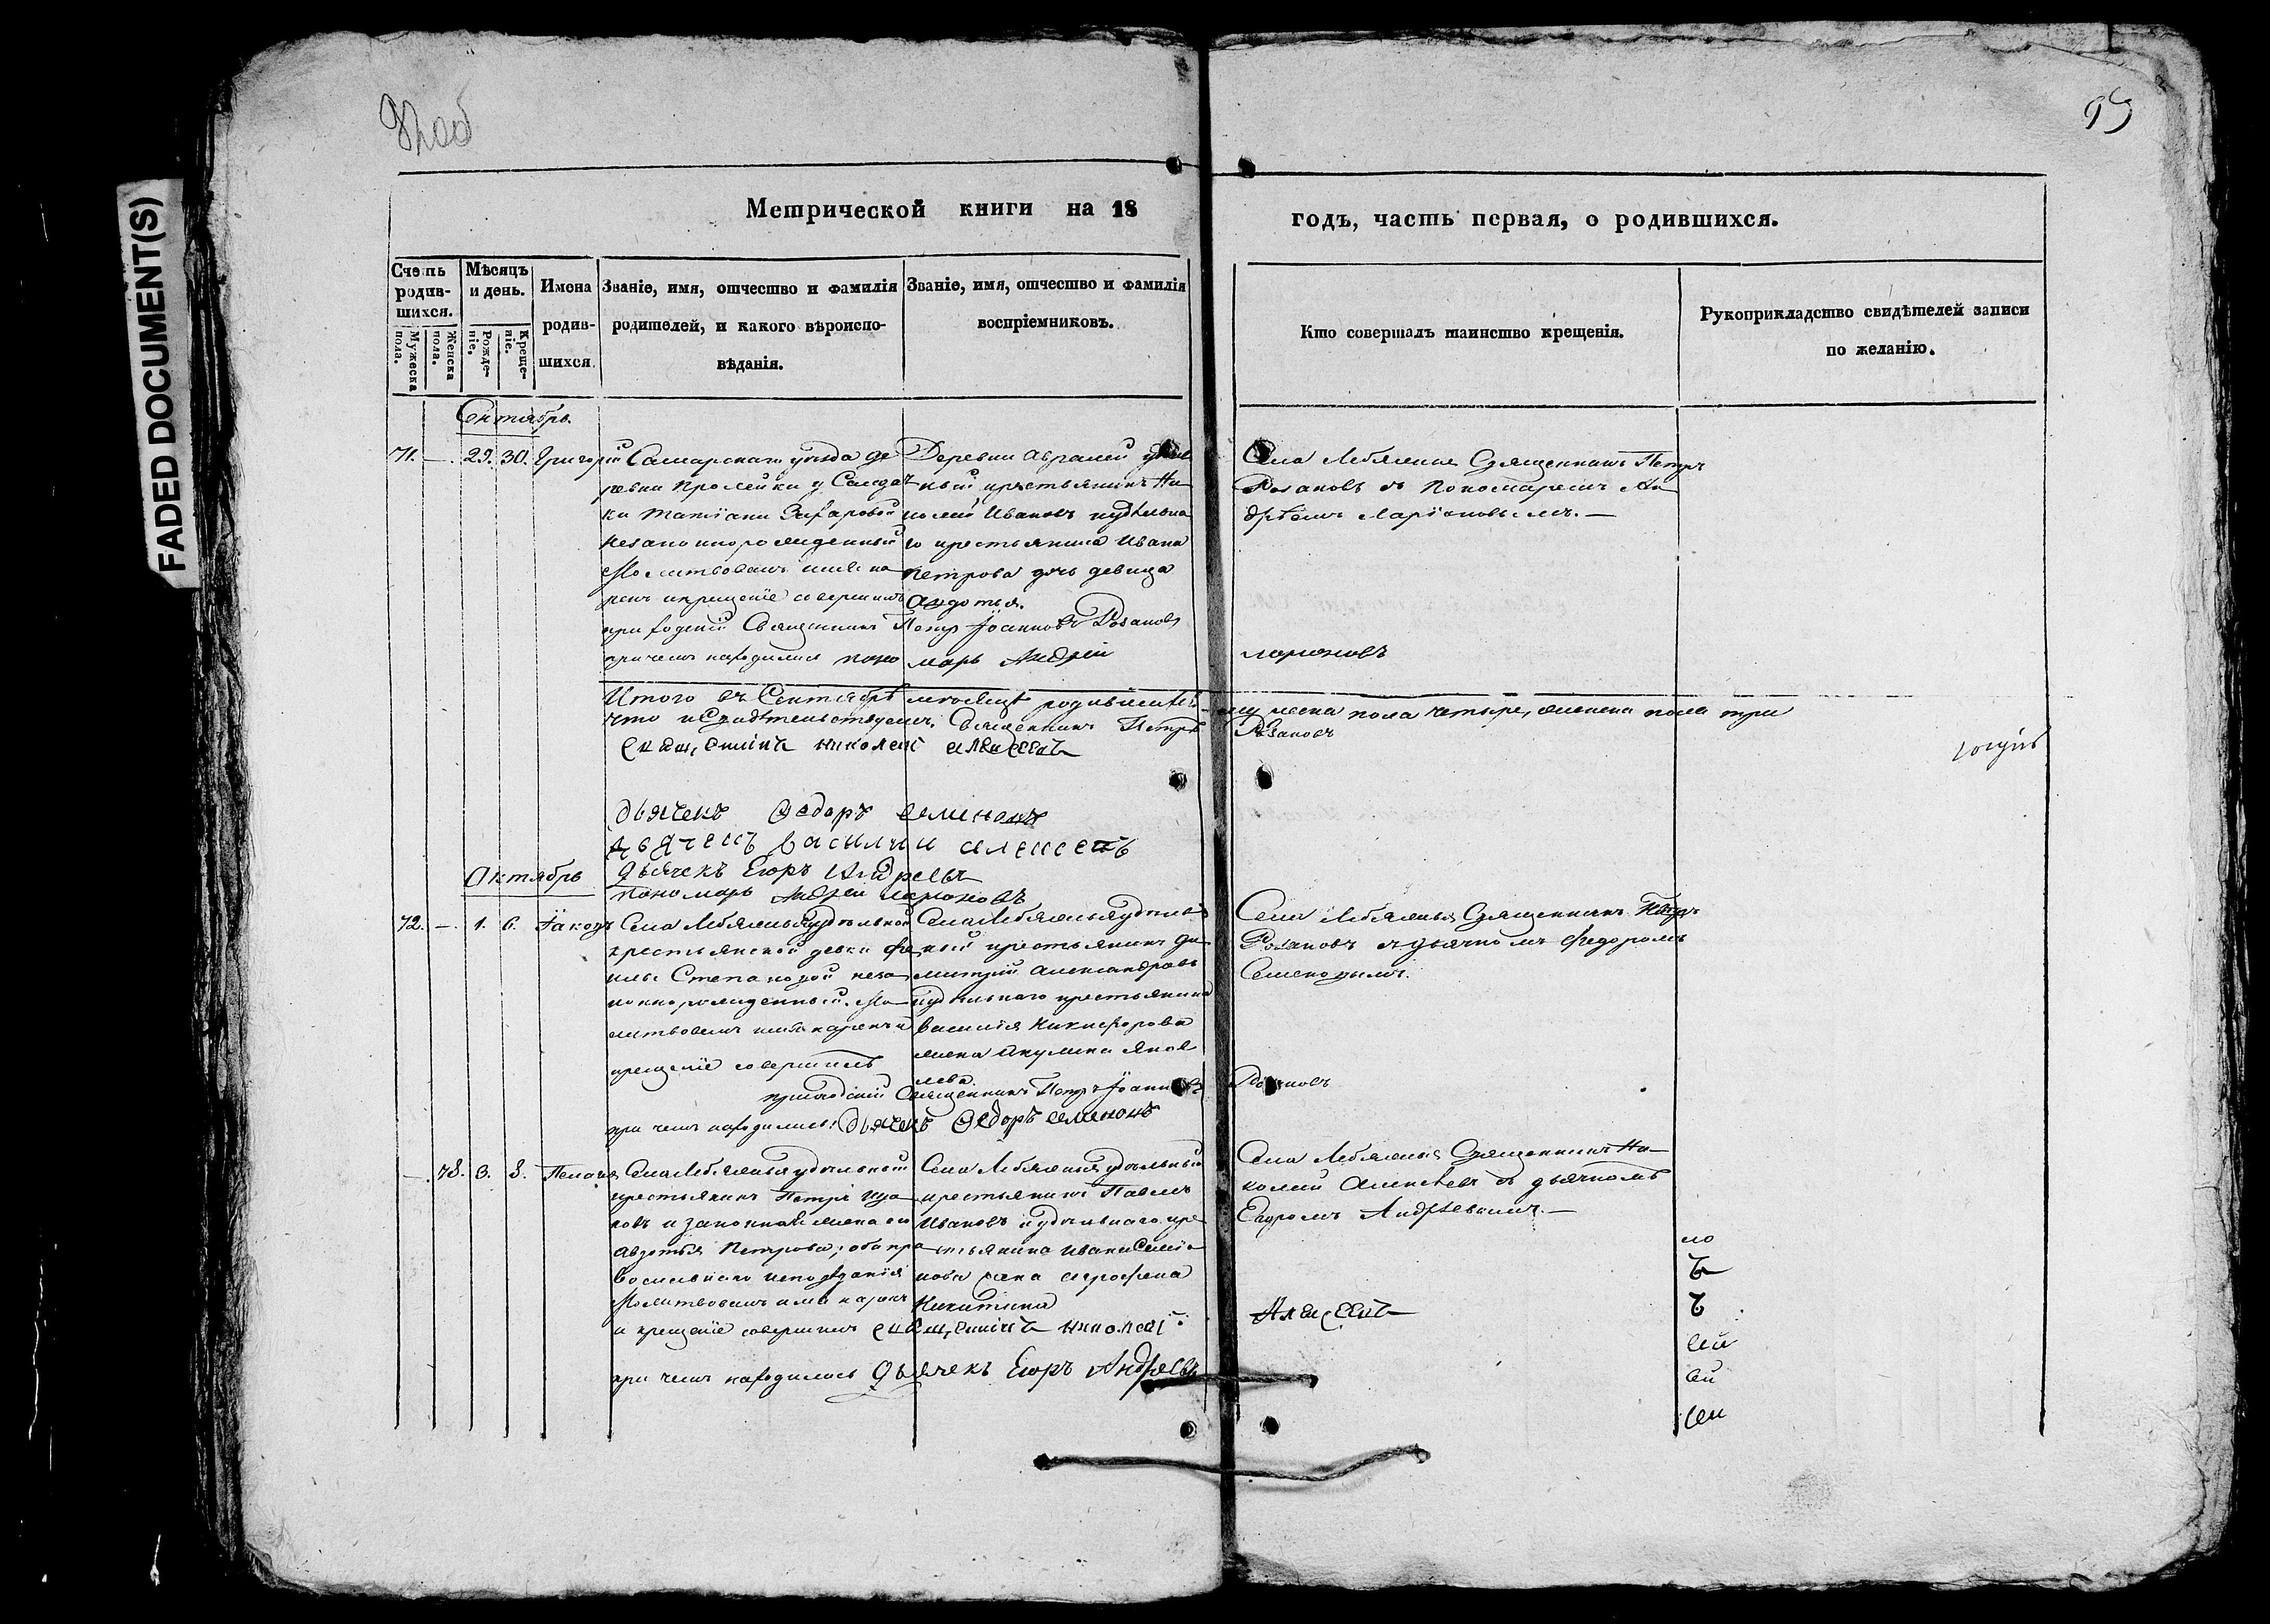 FADED DOCUMENT(S)
95
Метрической книги на 18
годъ, часть первая, о родившихся.
Счетъ родив-шихся.
Мужеска пола.
Женска пола.
Мѣсяцъ и день.
Рожде-ніе.
Креще-ніе.
Имена родив-шихся.
Званіе, имя, отчество и фамилія
родителей, и какого вѣроиспо-
вѣданія.
Званіе, имя, отчество и фамилія
воспріемниковъ.
Кто совершалъ таинство крещенія.
Рукоприкладство свидѣтелей записи
по желанію.
Сентябрь.
71. — 29. 30. Григорій
Самарскаго уѣзда де
ревни
ки Татіани Захаровой
незаконнорожденный
Молитвовалъ имя на
рекъ и крещеніе совершилъ
приходскій Священникъ Петръ Іоанновъ Розановъ
при чемъ находился пономарь Андрей Ларіоновъ
Деревни
ный крестьянинъ Ни
колай Ивановъ и удѣльна
го крестьянина Ивана
Петрова дочь девица
Авдотья.
Села Лебяжья Священникъ Петръ
Розановъ съ Пономаремъ Ан
дреемъ Ларіоновымъ. —
Итого въ Сентябрѣ мѣсяцѣ родившихся мужеска пола четыре, женска пола три
что и свидѣтельствуемъ: Священникъ Петръ Розановъ
священникъ николай алексеевъ
дьячекъ Федоръ семеновъ
дьячекъ василий алексеевъ
дьячекъ Егоръ Андреевъ
пономарь Андрей Ларионовъ
Октябрь
72. — 1. 6. Іаковъ
Села Лебяжья удѣльной
крестьянской девки Фе
клы Степановой неза
коннорожденный. Мо
литвовалъ имя нарекъ и
крещеніе совершилъ
приходскій Священникъ Петръ Іоанновъ Розановъ
при чемъ находились: дьячекъ Федоръ семеновъ
Села Лебяжья удѣль
ный крестьянинъ Ди
митрій Александровъ
и удѣльнаго крестьянина
Василія Никифорова
жена Акулина Яков
лева
Села Лебяжья Священникъ Петръ
Розановъ съ дьячкомъ Федоромъ
Семеновымъ.
— 78. 3. 8. Пелагея
Села Лебяжья удѣльный
крестьянинъ Петръ Иза
ковъ и законная жена его
Авдотья Петрова; оба пра
вославнаго исповѣданія
Молитвовалъ имя нарекъ
и крещеніе совершилъ священникъ николай Алексеевъ
при чемъ находились дьячекъ Егоръ Андреевъ
Села Лебяжья удѣльный
крестьянинъ Павелъ
Ивановъ и удѣльнаго кре
стьянина Ивана Симіо
нова жена Аграфена
Никитина
Села Лебяжья Священникъ Ни
колай Алексѣевъ съ дьячкомъ
Егоромъ Андрѣевымъ. —